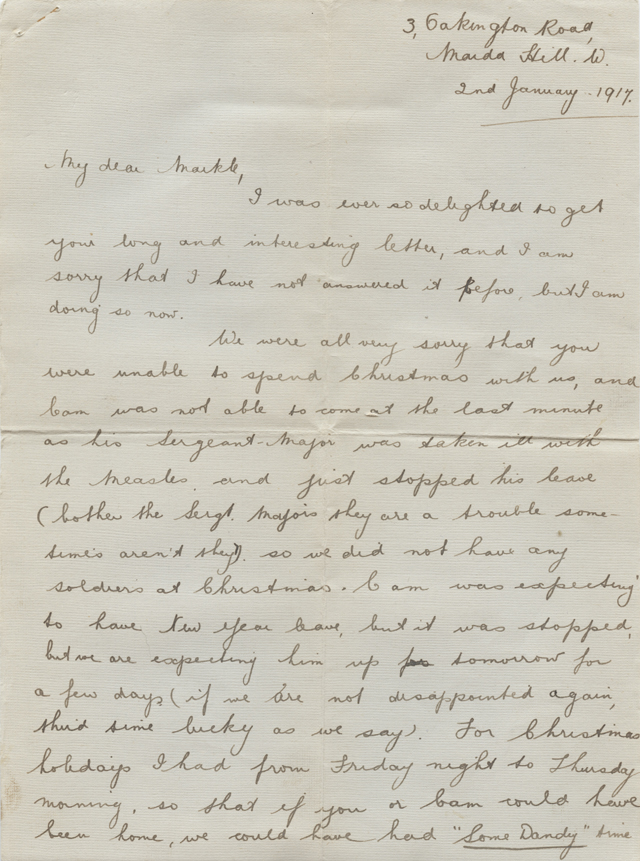 3, Oakington Road,
Maida Hill. W.
2nd January. 1917.
My dear Markle,
I was ever so delighted to get
your long and interesting letter, and I am
sorry that I have not answered it before, but I am
doing so now.
We were all very sorry that you
were unable to spend Christmas with us, and
Cam was not able to come at the last minute
as his Sergeant-Major was taken ill with
the Measles and just stopped his leave
(bother the Sergt. Majors they are a trouble some-
times aren't they). so we did not have any
soldiers at Christmas. Cam was expecting
to have New Year leave, but it was stopped,
but we are expecting him up for tomorrow for
a few days (if we are not disappointed again,
third time lucky as we say). For Christmas
holidays I had from Friday night to Thursday
morning, so that if you or Cam could have
been home, we could have had "Some Dandy" time